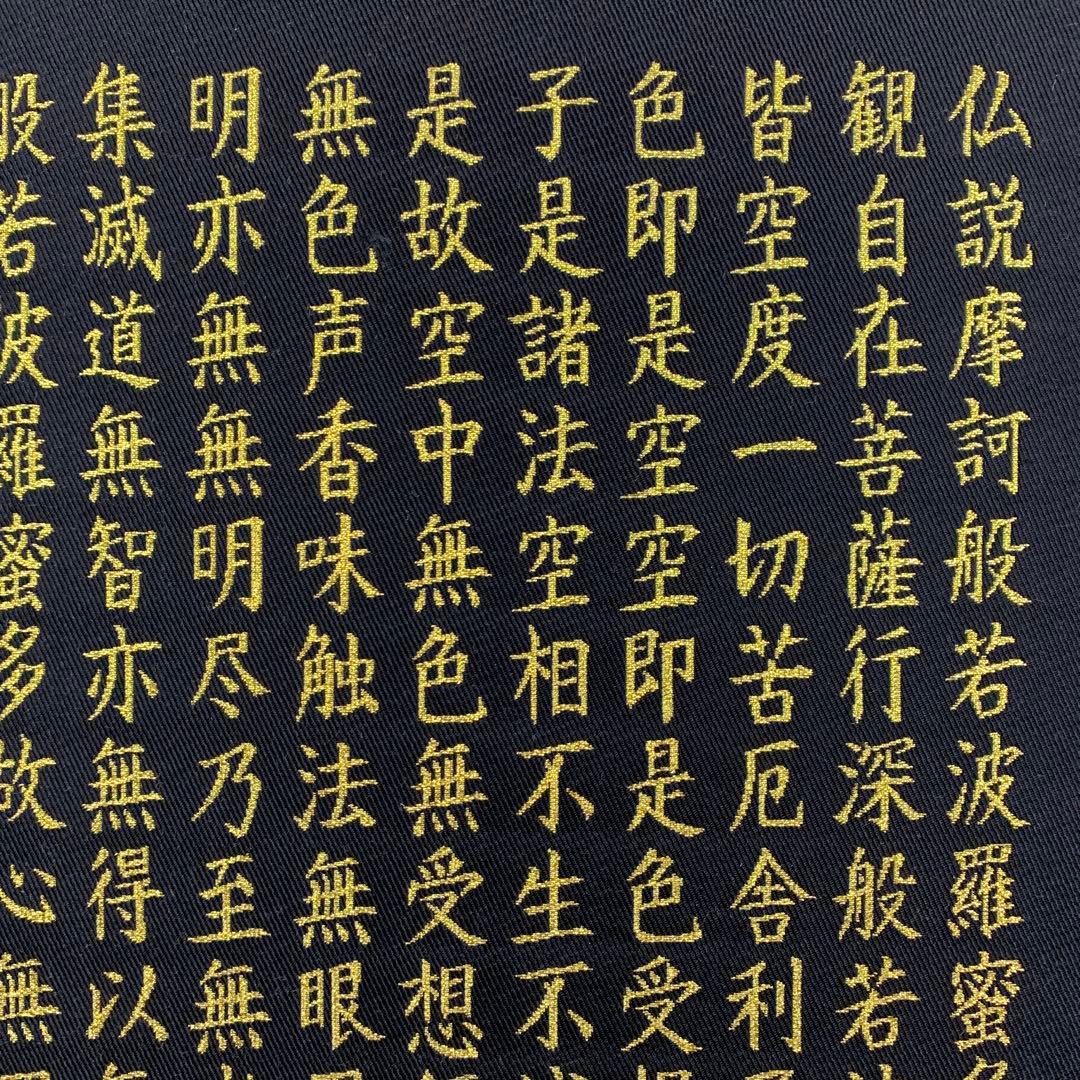 仏説摩訶般若波羅蜜
観自在菩薩行深般若
皆空度一切苦厄舎利
色即是空空即是色受
子是諸法空相不生不
是故空中無色無受想
無色声香味触法無眼
明亦無無明尽乃至無
集滅道無智亦無得以
般若波羅蜜多故心無